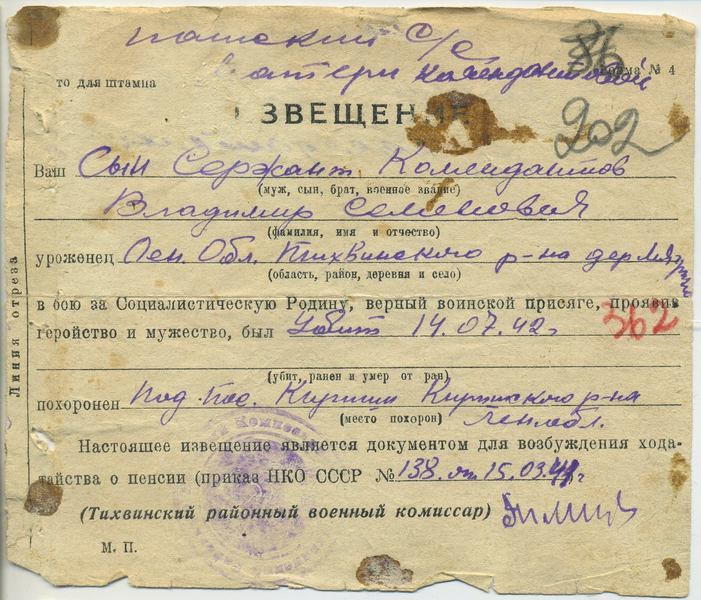 с/с 36
то для штампа матери Комендантовой форма № 4
ЗВЕЩЕНИЕ
202
Ваш Сын Сержант Комендантов
(муж, сын, брат, военное звание)
Владимир Семенович
(фамилия, имя и отчество)
уроженец Лен. Обл. Тихвинского р-на дер
(область, район, деревня и село)
в бою за Социалистическую Родину, верный воинской присяге, проявив
геройство и мужество, был Убит 14.07.42г 362
(убит, ранен и умер от ран)
похоронен Под пос. Кириши Киришского р-на
(место похорон) Ленобл.
Настоящее извещение является документом для возбуждения хода-
тайства о пенсии (приказ НКО СССР № 138 от 15.03.41г
(Тихвинский районный военный комиссар)
М. П.
Линия отреза